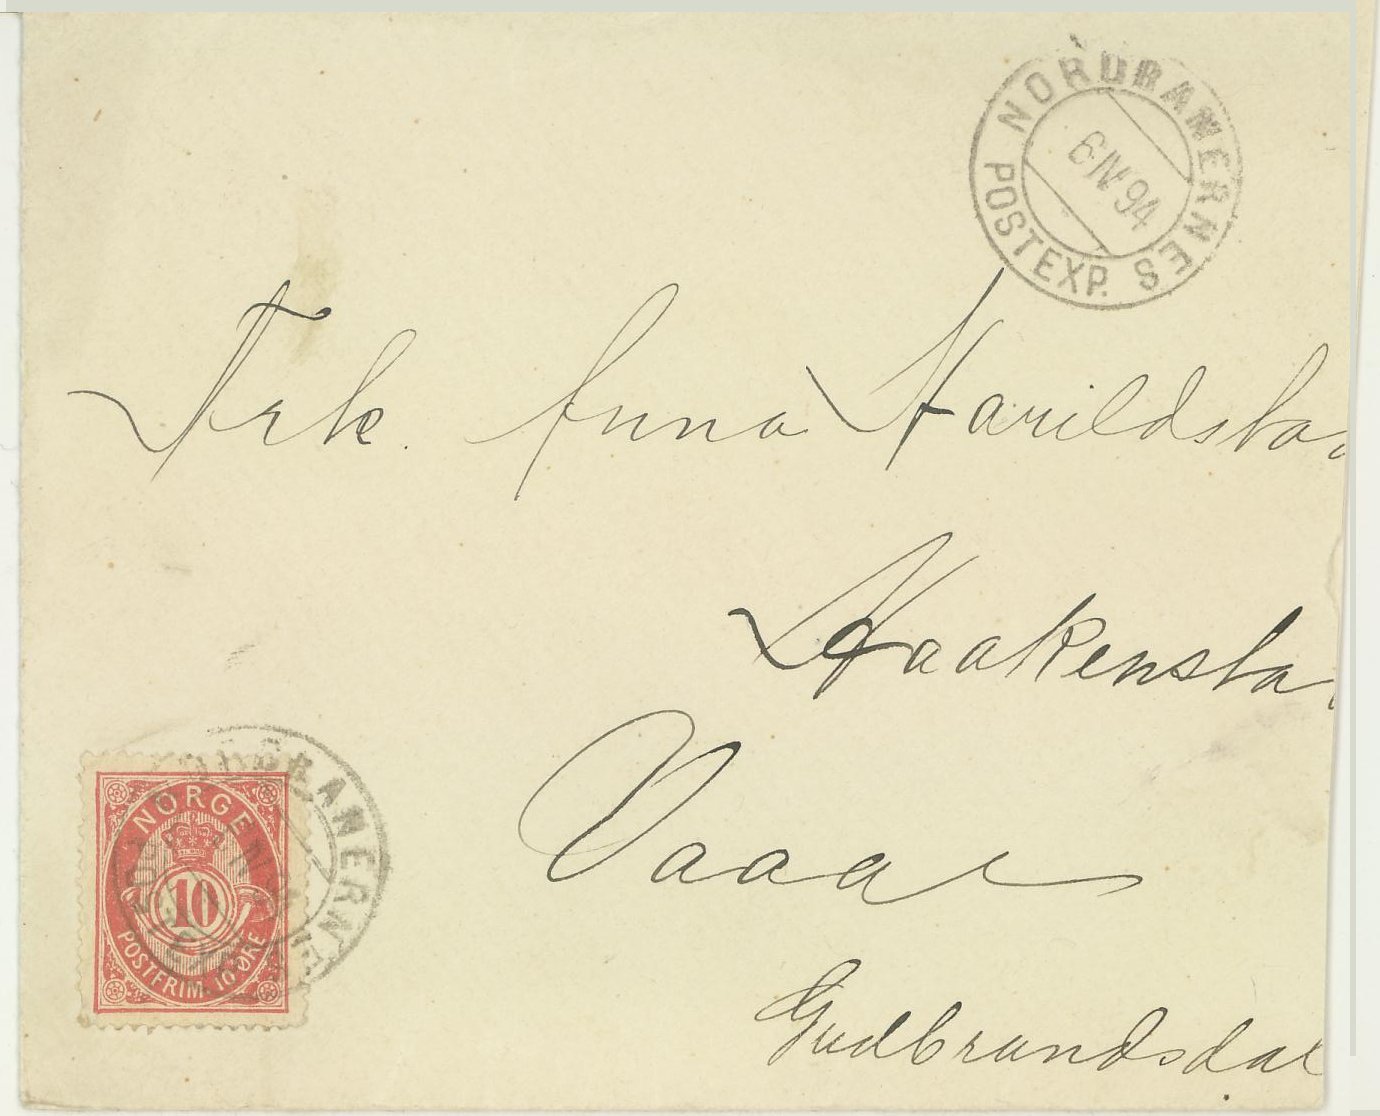 NORDBANERNES
POSTEXP.
6 IV 94
Frk. Anna Harildsta
Haakensta
Vaaar
Gudbrandsdal
NORGE
10
POSTFRIM. 10 ØRE